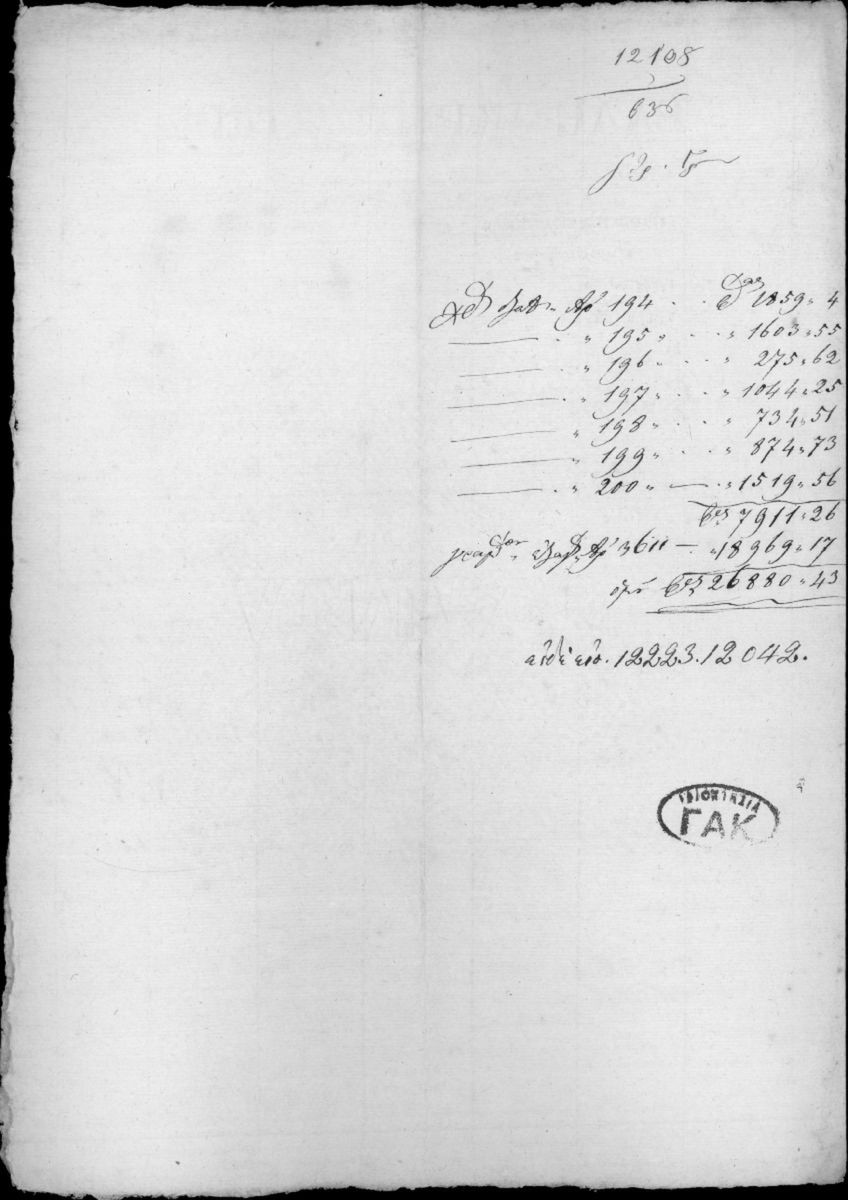 12108
636
Ἀρ 194 . . 1859 " 4
" 195 " . . " 1603 " 55
" 196 " . . " 275 " 62
" 197 " . . " 1044 " 25
" 198 " . . " 734 " 51
" 199 " . . " 874 " 73
" 200 " — " 1519 " 56
7911 " 26
Ἀρ 3611 — " 18969 " 17
26880 " 43
12223. 12042.
ΙΔΙΟΚΤΗΣΙΑ
ΓΑΚ